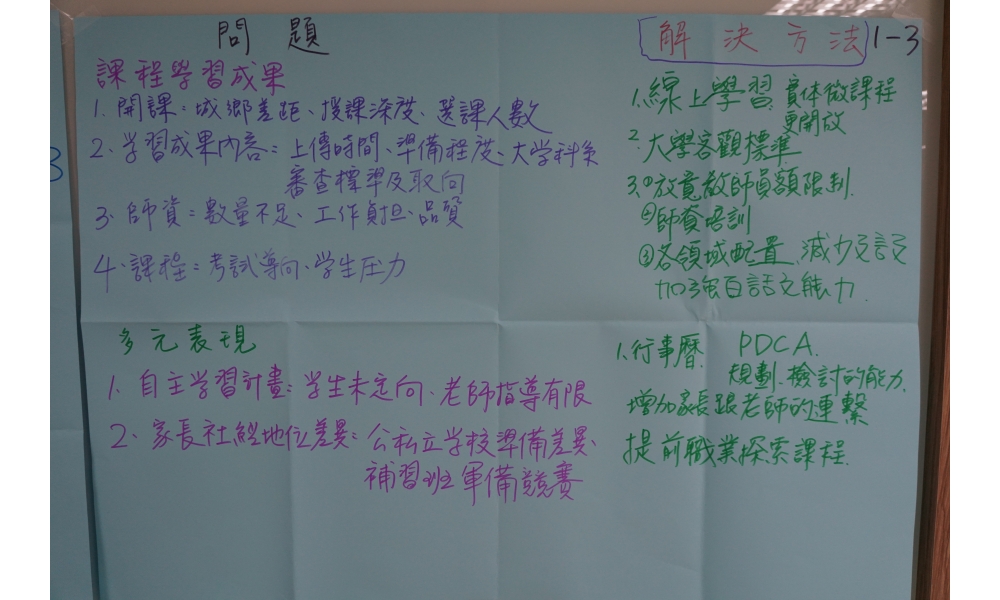 問題
課程學習成果
1. 開課：城鄉差距、授課深度、選課人數
2、学習成果內容：上傳時間、準備程度、大学科系
審查標準及取向
3、師資：數量不足、工作負担、品質
4、課程：考試導向、学生压力
多元表現
1. 自主学習計畫：学生未定向、老師指導有限
2、家長社經地位差異：公私立学校準備差異、
補習班軍備競賽
解決方法 1-3
1.線上學習 實体微課程
更開放
2.大學客觀標準
3.①放寬教師員額限制.
②師資培訓
③各領域配置 減少文言文
加強白話文能力.
1.行事曆 PDCA.
規劃、檢討的能力.
增加家長跟老師的連繫
提前職業探索課程.
3